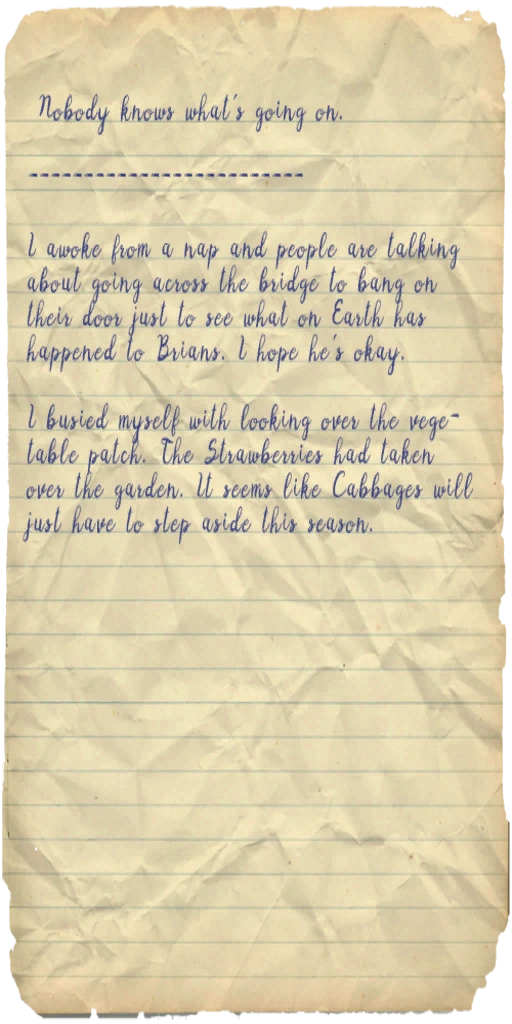 Nobody knows what's going on.
-------------------------
I awoke from a nap and people are talking
about going across the bridge to bang on
their door just to see what on Earth has
happened to Brians. I hope he's okay.
I busied myself with looking over the vege-
table patch. The Strawberries had taken
over the garden. It seems like Cabbages will
just have to step aside this season.